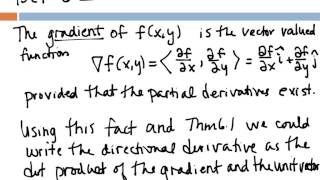 The gradient of f(x,y) is the vector valued
function
∇f(x,y) = ⟨∂f/∂x, ∂f/∂y⟩ = ∂f/∂x î + ∂f/∂y ĵ
provided that the partial derivatives exist.
Using this fact and Thm 6.1 we could
write the directional derivative as the
dot product of the gradient and the unit vector